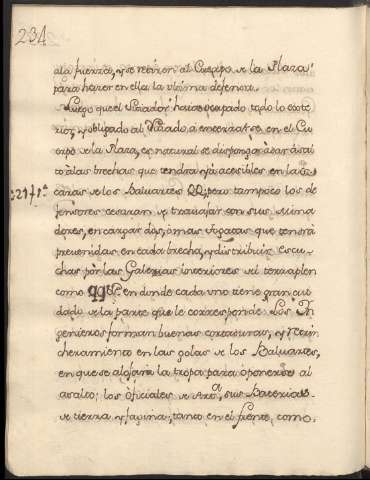 234
ala fuerza, y se retiren al Cuerpo de la Plaza
para hazer en ella la ultima defensa.
Luego que el Sitiador haia ocupado todo lo exte
rior, y obligado al Sitiado a encerrarse en el Cu
erpo de la Plaza, es natural se disponga a dar asal
to alas brechas que tendra ya acesibles en las
caras de los Baluartes QQ; pero tampoco los de
fensores cesaran de travajar con sus Mina
dores, en cargar dos, ò mas fogatas que tendrà
prevenidas en cada brecha, y distribuir escu
chas por las Galerias interiores del terraplen
como qq&. en donde cada uno tiene gran cui
dado de la parte que le corresponde. Los In
genieros forman buenas cortaduras, y Atrin
cheramientos en las golas de los Baluartes,
en que se alojara la tropa para oponerse al
asalto; los oficiales de Art.ª sus Baterias
de tierra y faxina, tanto en el frente, como